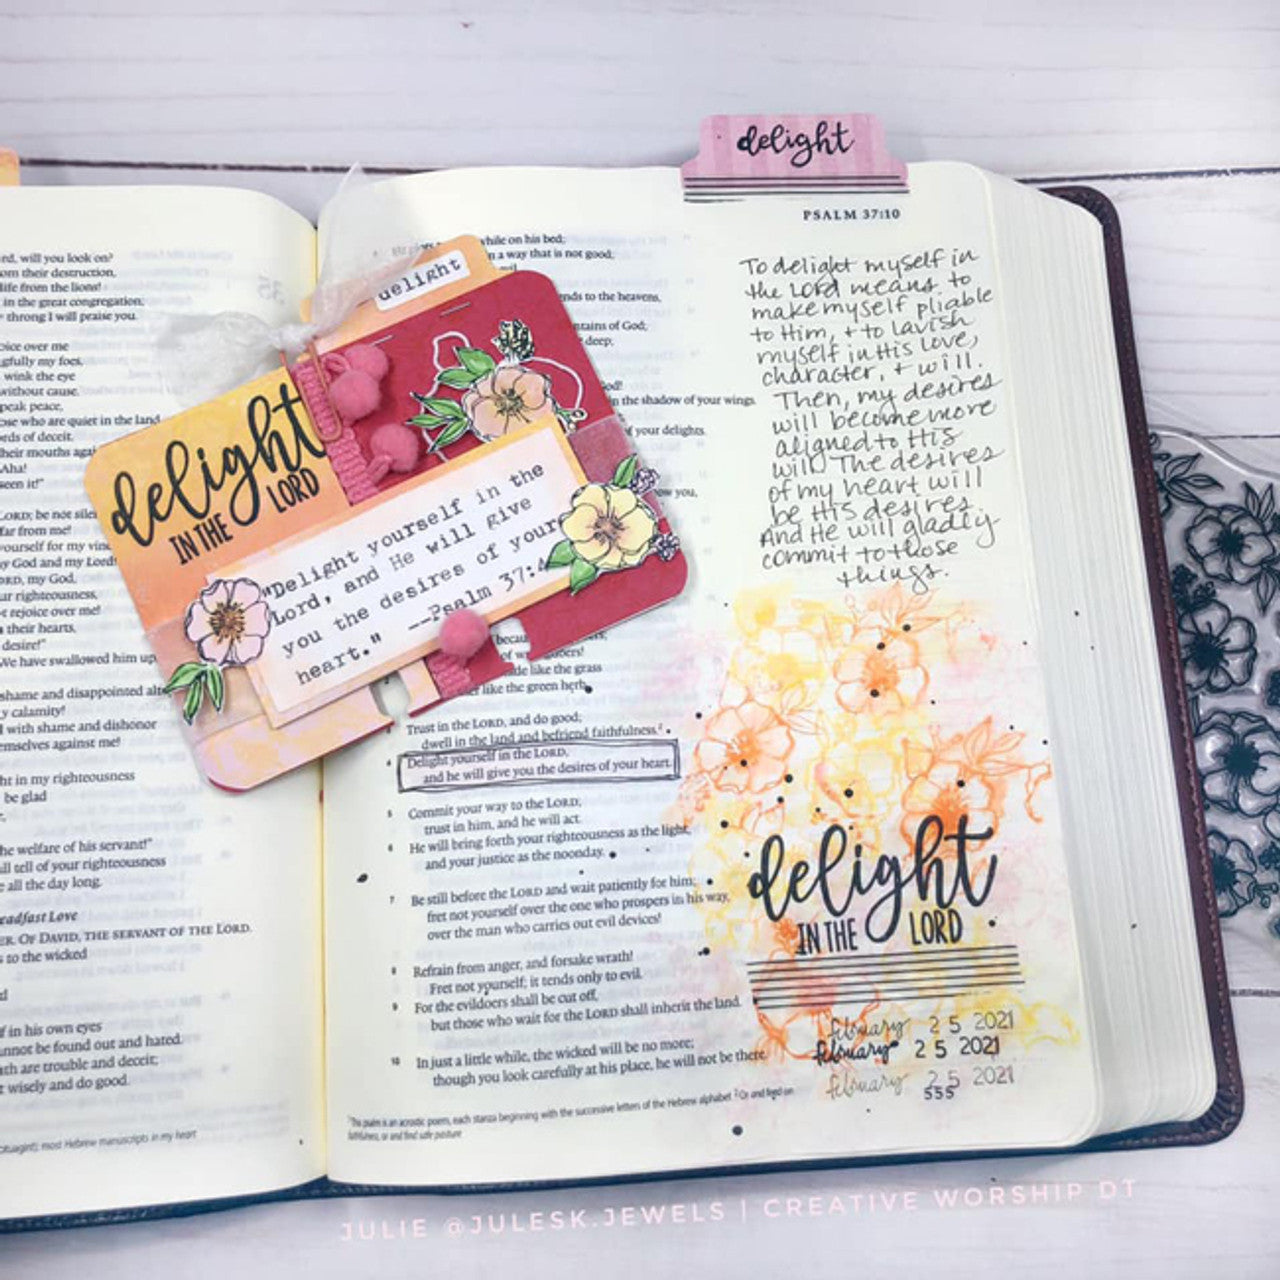 rd, will you look on?
om their destruction,
life from the lions!
in the great congregation;
throng I will praise you.
oice over me
gfully my foes,
wink the eye
without cause.
peak peace,
ose who are quiet in the land
ords of deceit.
their mouths agai
Aha!
seen it!"
LORD; be not silen
far from me!
yourself for my vind
y God and my Lord!
ORD, my God,
ur righteousness,
t rejoice over me!
their hearts,
desire!"
We have swallowed him up
shame and disappointed alto
y calamity!
with shame and dishonor
emselves against me!
ht in my righteousness
be glad
he welfare of his servant!"
ll tell of your righteousness
e all the day long.
eadfast Love
ER. OF DAVID, THE SERVANT OF THE LORD.
s to the wicked
f in his own eyes
nnot be found out and hated.
uth are trouble and deceit;
t wisely and do good.
most Hebrew manuscripts in my heart
delight
delight
IN THE LORD
"Delight yourself in the
Lord, and He will give
you the desires of your
heart." --Psalm 37:4
while on his bed;
n a way that is not good;
evil.
nds to the heavens,
ntains of God;
deep;
God!
in the shadow of your wings.
of your delights.
ow you,
like the grass
like the green herb.
Trust in the LORD, and do good;
dwell in the land and befriend faithfulness.²
4 Delight yourself in the LORD,
and he will give you the desires of your heart.
5 Commit your way to the LORD;
trust in him, and he will act.
6 He will bring forth your righteousness as the light,
and your justice as the noonday.
7 Be still before the LORD and wait patiently for him;
fret not yourself over the one who prospers in his way,
over the man who carries out evil devices!
8 Refrain from anger, and forsake wrath!
Fret not yourself; it tends only to evil.
9 For the evildoers shall be cut off,
but those who wait for the LORD shall inherit the land.
10 In just a little while, the wicked will be no more;
though you look carefully at his place, he will not be there.
¹This psalm is an acrostic poem, each stanza beginning with the successive letters of the Hebrew alphabet ² Or and feed on
faithfulness, or and find safe pasture
delight
PSALM 37:10
To delight myself in
the Lord means to
make myself pliable
to Him, + to lavish
myself in His love,
character, + will.
Then, my desires
will become more
aligned to His
will. The desires
of my heart will
be His desires.
And He will gladly
commit to those
things.
delight
IN THE LORD
february 25 2021
february 25 2021
february 25 2021
555
JULIE @JULESK.JEWELS | CREATIVE WORSHIP DT